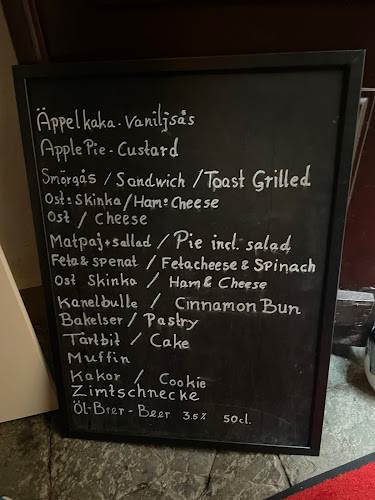 Äppelkaka - Vaniljsås
Apple Pie - Custard
Smörgås / Sandwich / Toast Grilled
Ost & Skinka / Ham & Cheese
Ost / Cheese
Matpaj + sallad / Pie incl. salad
Feta & spenat / Fetacheese & Spinach
Ost Skinka / Ham & Cheese
Kanelbulle / Cinnamon Bun
Bakelser / Pastry
Tårtbit / Cake
Muffin
Kakor / Cookie
Zimtschnecke
Öl - Bier - Beer 3.5% 50cl.